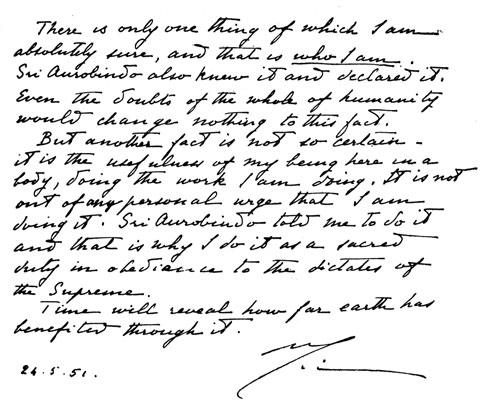 There is only one thing of which I am
absolutely sure, and that is who I am.
Sri Aurobindo also knew it and declared it.
Even the doubts of the whole of humanity
would change nothing to this fact.
But another fact is not so certain –
it is the usefulness of my being here in a
body, doing the work I am doing. It is not
out of any personal urge that I am
doing it. Sri Aurobindo told me to do it
and that is why I do it as a sacred
duty in obedience to the dictates of
the Supreme.
Time will reveal how far earth has
benefited through it.
24.5.51.